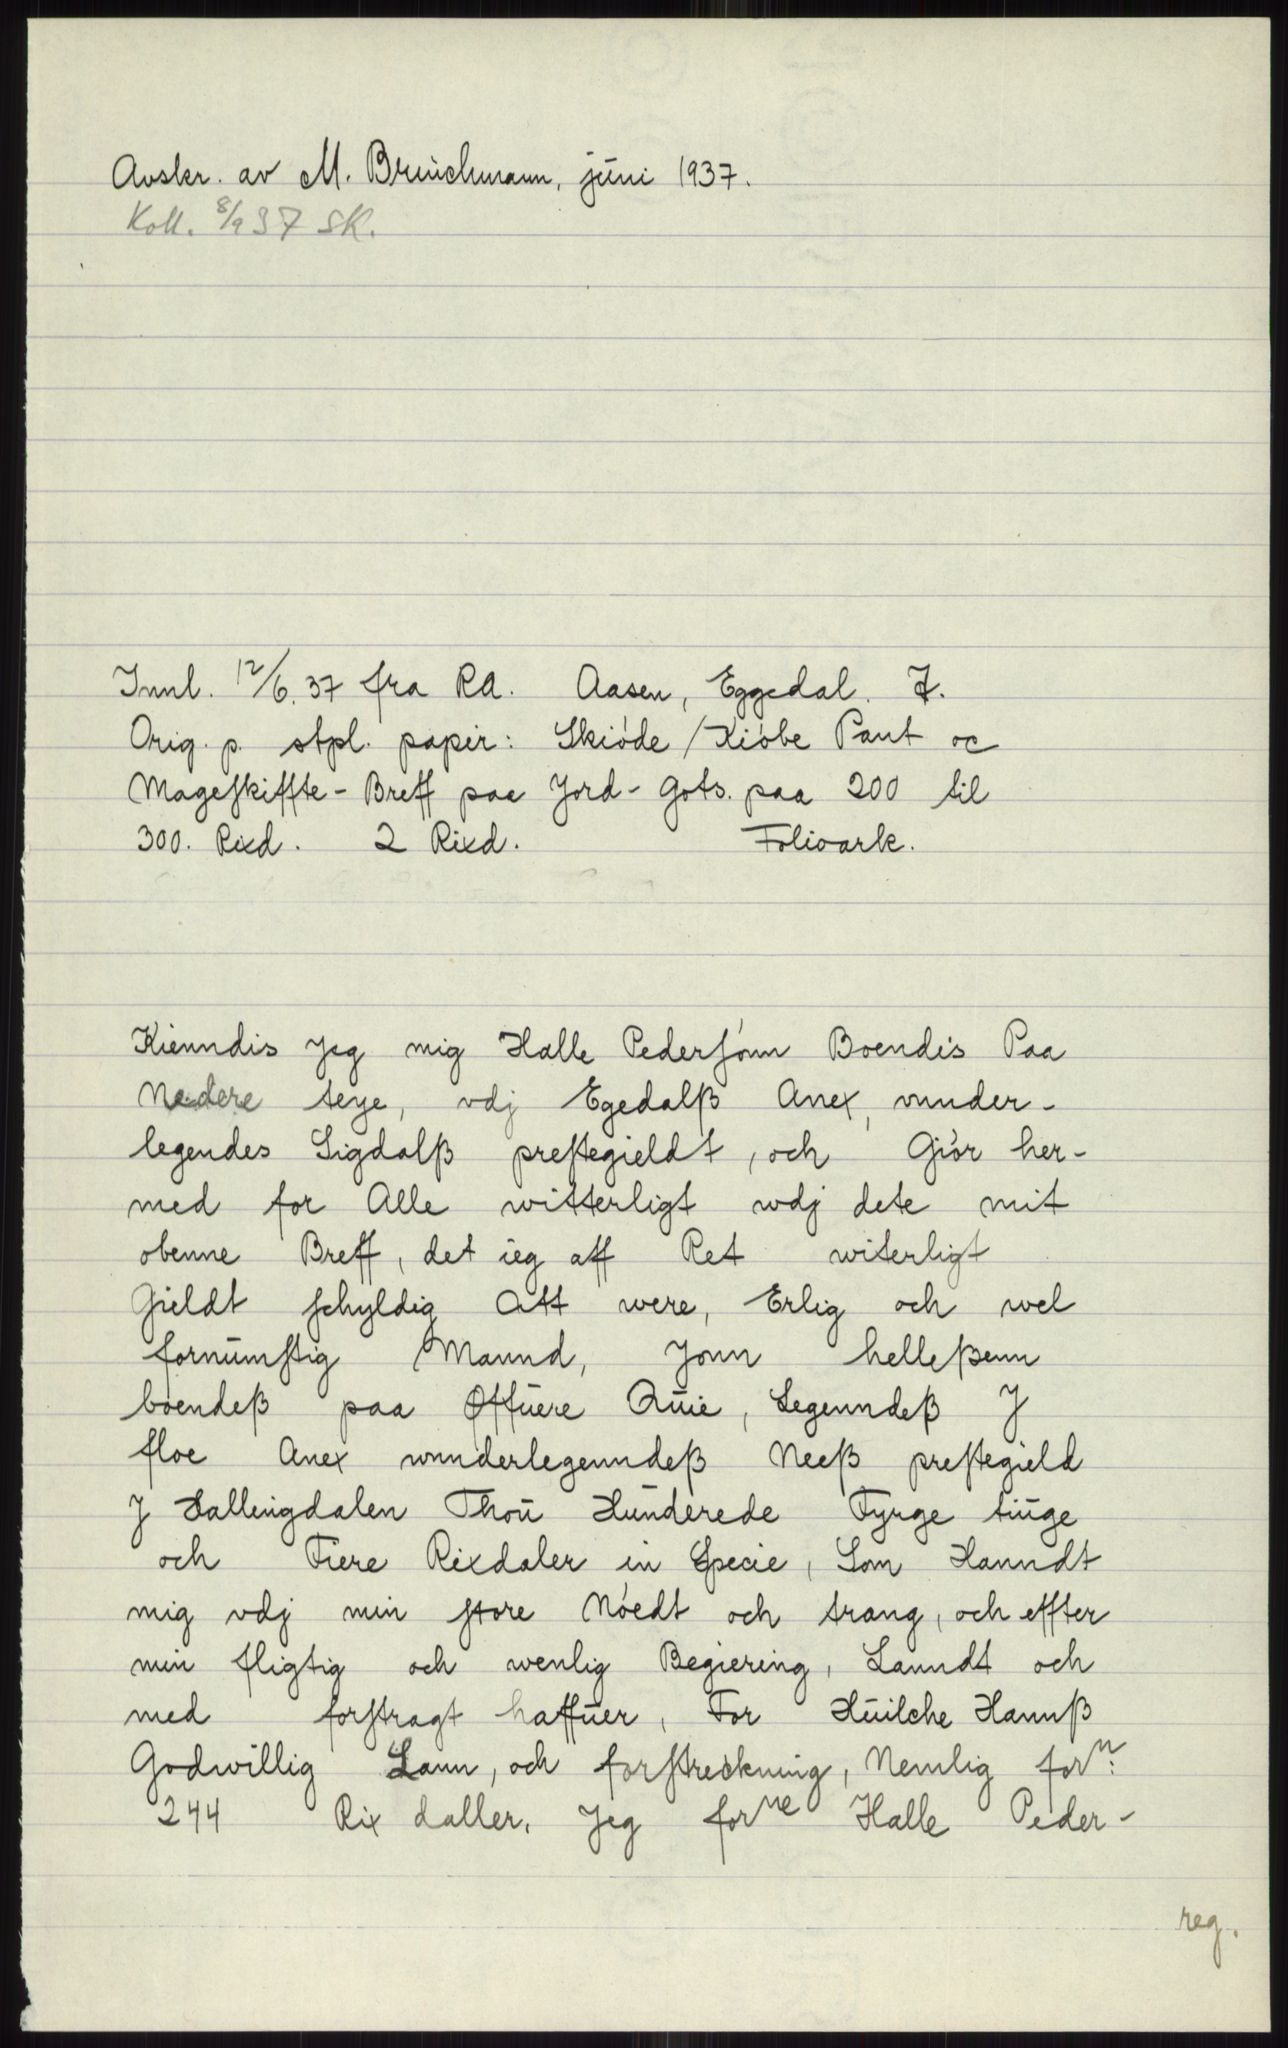 Avskr. av M. Bruichmann, juni 1937.
Koll. 8/9 37 SK.
Innl. 12/6. 37 fra RA. Aasen, Eggedal. 7.
Orig. p. stpl. papir: Skióde / Kióbe Pant oc
Mageskiffte - Breff paa Jord - Gots. paa 200 til
300. Rixd. 2 Rixd. Folioark.
Kienndis Jeg mig Halle Pedersónn Boendis Paa
Nedere teye, vdj Egedalß Anex, vnnder-
legendes Sigdalß prestegieldt, och Giór her-
med for Alle witterligt wdj dete mit
obenne Breff, det ieg aff Ret witerligt
Gieldt schyldig Att were, Erlig och wel
fornumstig Mannd, Jonn helleßenn
boendeß paa Øffuere Quie, Legenndeß J
floe Anex wnnderlegenndeß Neeß prestegield
J Hallingdalen Thou Hunderede Fyrge tiuge
och Fiere Rixdaler in Specie, Som Hanndt
mig vdj min store Nóedt och trang, och effter
min fligtig och wenlig Begiering, Lanndt och
med forstragt haffuer, For Huilche Hannß
Godwillig Lann, och forstreckning, Nemlig forn:
244 Rix daller, Jeg forne Halle Peder-
reg.